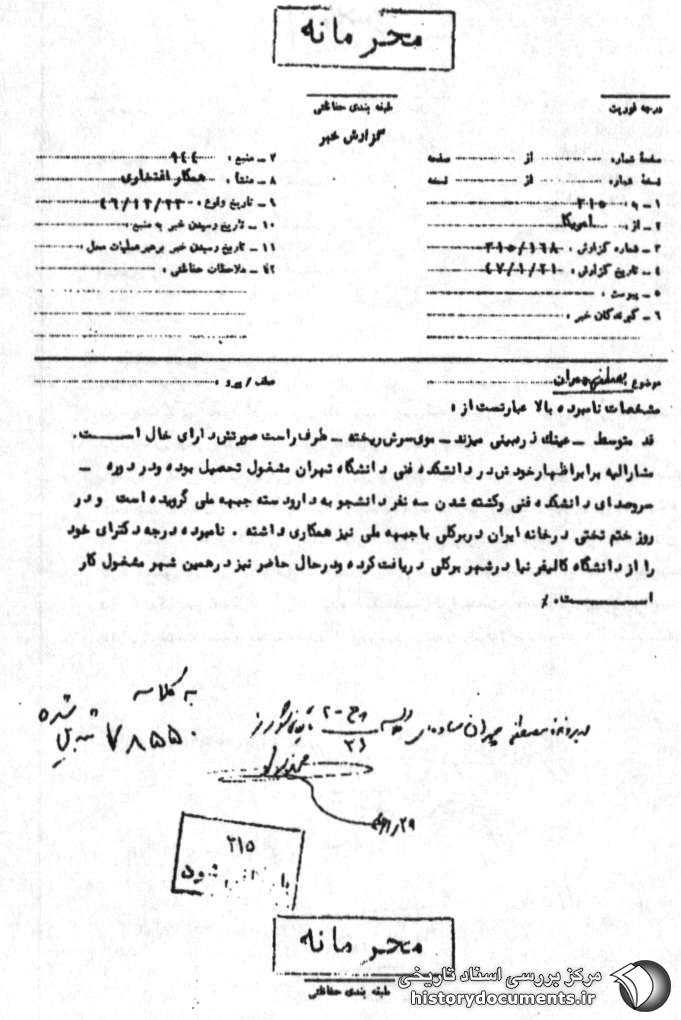 محرمانه
درجه فوریت
طبقه بندی حفاظتی
گزارش خبر
صفحهٔ شماره: از صفحه
نسخهٔ شماره: از نسخه
۱ ــ به : ۳۱۵
۲ ــ از : امریکا
۳ ــ شماره گزارش : ۳۱۵/۱۶۸
۴ ــ تاریخ گزارش : ۴۷/۱/۲۱
۵ ــ پیوست :
۶ ــ گیرندگان خبر :
۷ ــ منبع : ۹۴۴
۸ ــ منشأ : همکار افتخاری
۹ ــ تاریخ وقوع : ۴۶/۱۲/۲۳
۱۰ ــ تاریخ رسیدن خبر به منبع :
۱۱ ــ تاریخ رسیدن خبر برهبر عملیات محل :
۱۲ ــ ملاحظات حفاظتی :
موضوع مصطفی چمران
عطف / پیرو :
مشخصات نامبرده بالا عبارتست از :
قد متوسط ــ عینک ذره‌بینی میزند ــ موی سرش ریخته ــ طرف راست صورتش دارای خال اســـت.
مشارالیه برابر اظهار خودش در دانشکده فنی دانشگاه تهران مشغول تحصیل بوده و در دوره ــ
سروصدای دانشکده فنی و کشته شدن سه نفر دانشجو به دار و دسته جبهه ملی گرویده است و در
روز ختم تختی در خانه ایران در برکلی با جبهه ملی نیز همکاری داشته . نامبرده درجه دکترای خود
را از دانشگاه کالیفرنیا در شهر برکلی دریافت کرده و در حال حاضر نیز در همین شهر مشغول کار
اســـــت. /
به کلاسه
۷۸۵۵۰
تبدیل شده
مصطفی چمران ساوه‌ای
۲۹
۳۱۵
شود
محرمانه
طبقه بندی حفاظتی
مرکز بررسی اسناد تاریخی
historydocuments.ir